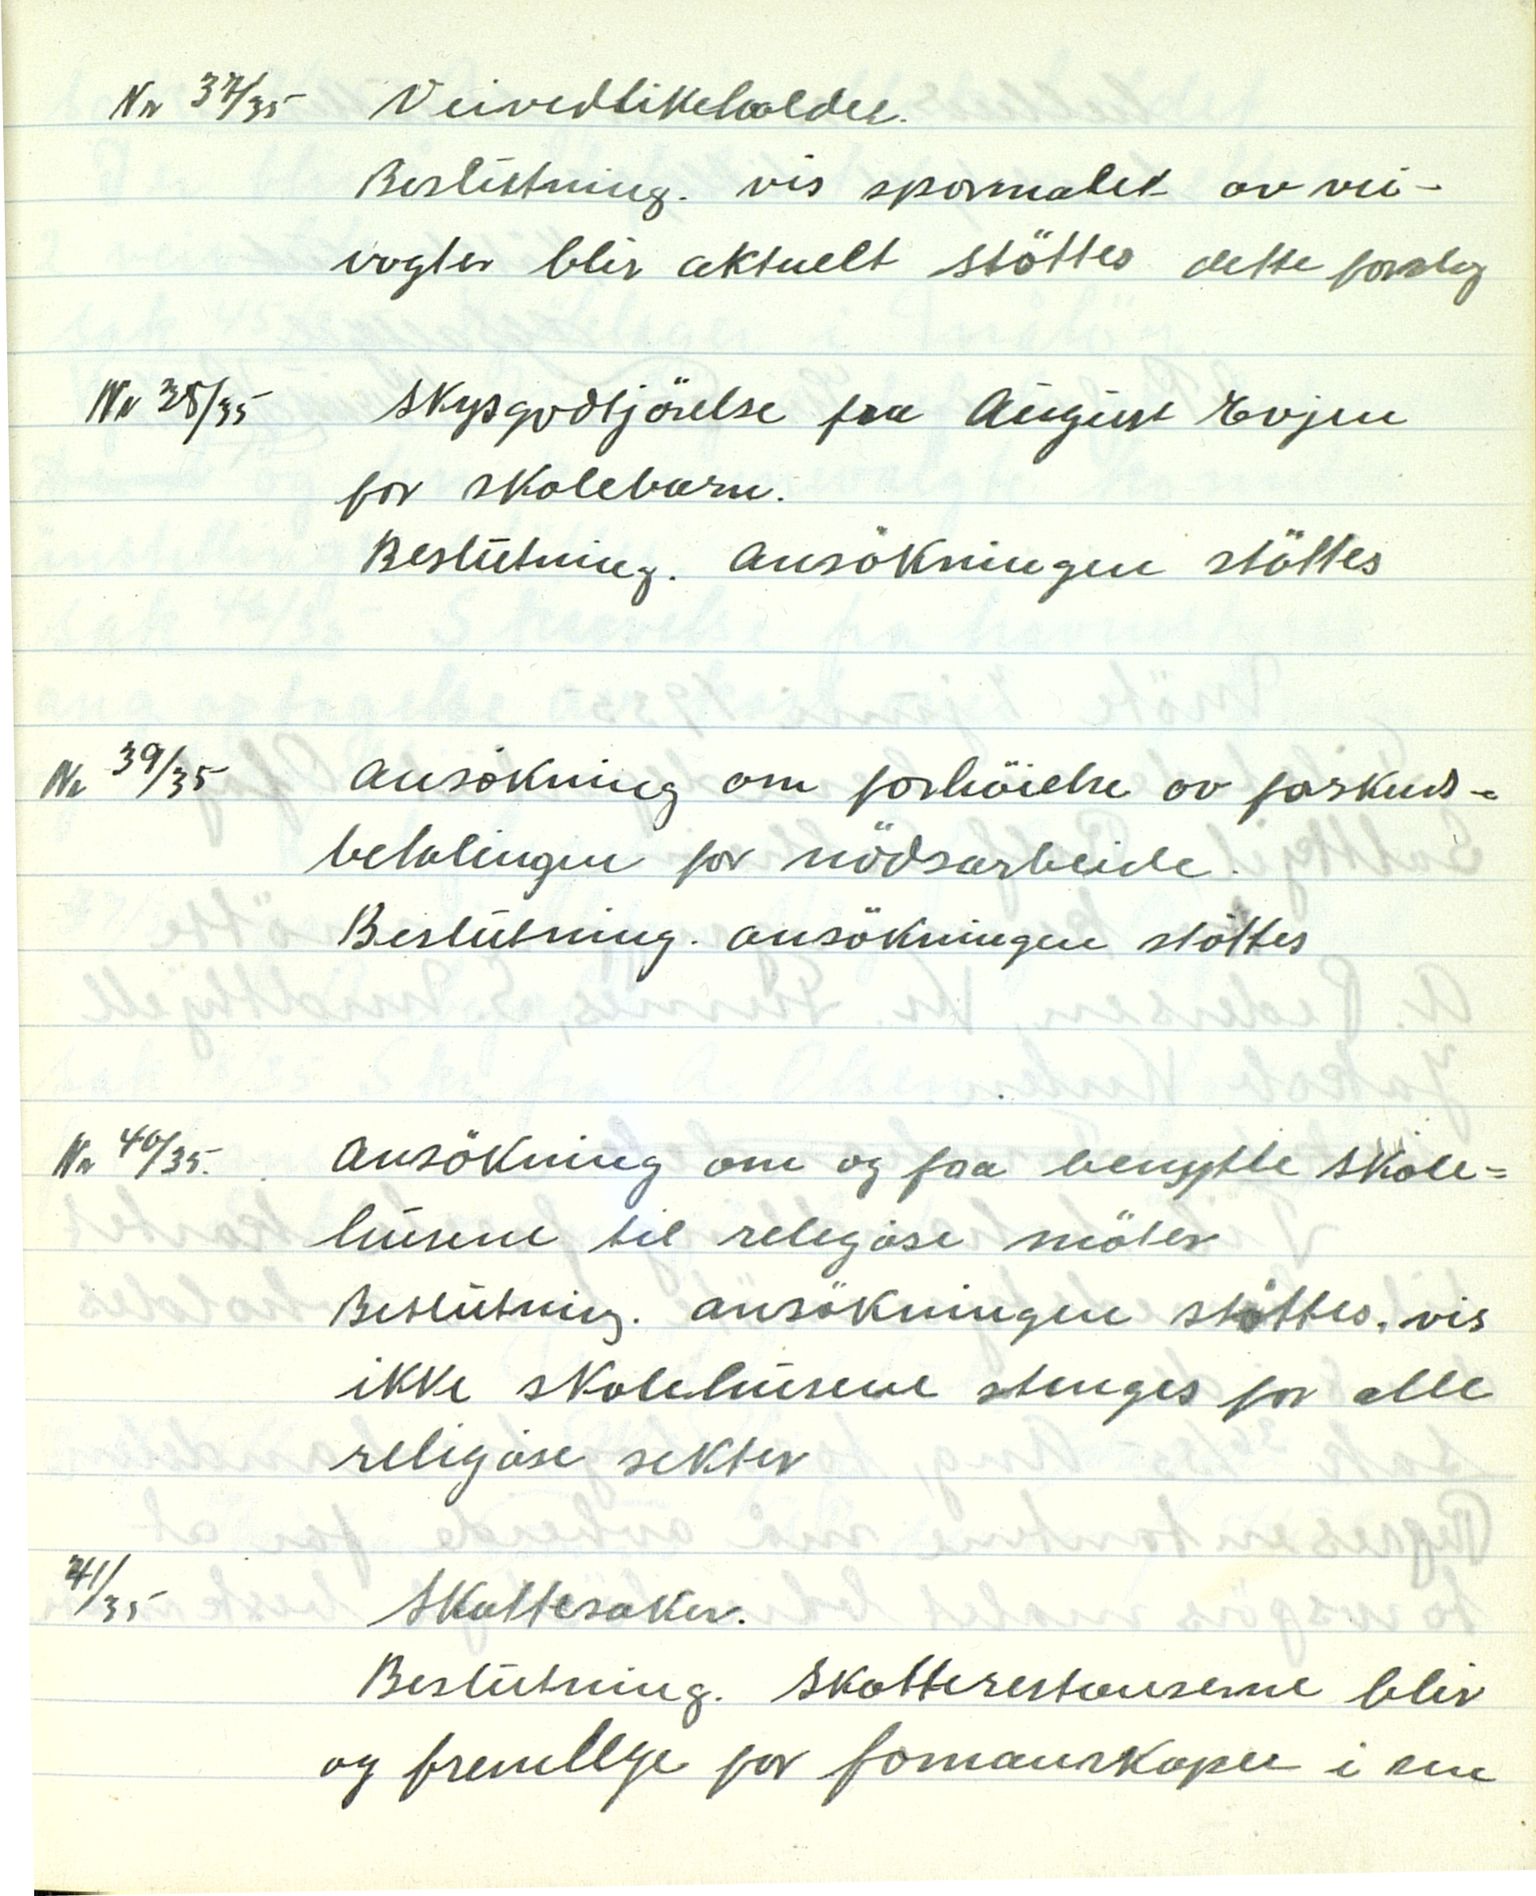 Nr 37/35 Veivedlikeholdet.
Beslutning. vis spørmalet av vei-
vogter blir aktuelt stöttes dette forslag
Nr 38/35 Skysgodtjörelse fra August Evjen
for skolebarn.
Beslutning. Ansökningen stöttes
Nr 39/35 Ansökning om forhöielse av forskuds-
betalingen for nödsarbeide.
Beslutning. Ansökningen stöttes
Nr 40/35. Ansökning om og faa benytte skole=
husene til religiøse möter
Beslutning. Ansökningen støttes. vis
ikke skolehusene stenges for alle
religiøse sekter
41/35 Skattesaker.
Beslutning. Skatterestanserne blir
og fremlege for formanskapet i sin